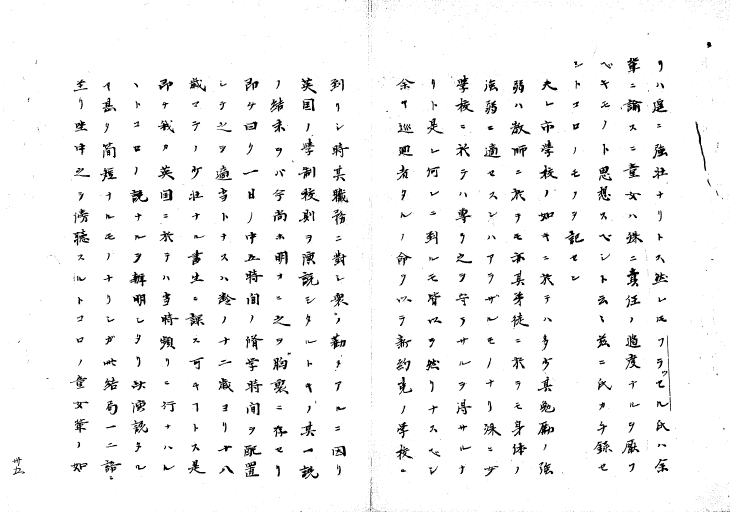 リハ遥ニ強壮ナリトス然レ𪜈フラッセル氏ハ余
輩ニ諭スニ童女ハ殊ニ責任ノ過度ナルヲ厭フ
ベキモノト思想スベシト云々茲ニ氏カ手録セ
シトコロノモノヲ記セン
夫レ市学校ノ如キニ於テハ多少其勉励ノ強
弱ハ教師ニ於ヲモ亦其弟徒ニ於ヲモ身体ノ
強弱ニ適セスンハアラザルモノナリ殊ニ少
学校ニ於テハ専ラ之ヲ守ラサルヲ得サルナ
リト是レ何レニ到ルモ皆以テ然リナスベシ
余ヤ巡廻者タルノ命ヲ以テ新約克ノ学校ニ
到リシ時其職務ニ対シ衆ノ勧メアルニ因リ
英国ノ学制校則ヲ演説シタルトキノ其一説
ノ結末ヲバ今尚ホ明カニ之ヲ胸裏ニ存セリ
即ケ曰ク一日ノ中五時間ノ脩学時間ヲ配置
シテ之ヲ適当トナスハ齢ノ十二歳ヨリ十八
歳マテノ少壮ナル書生ニ課ス可キヿトス是
即チ我カ英国ニ於テハ当時頻リニ行ナハル
ヽトコロノ説ナルヲ辨明シタリ此演説タル
イ甚タ簡短ナルモノナリシガ此結局一二語ニ
至リ坐中之ヲ傍聴スルトコロノ童女輩ノ如
卅五